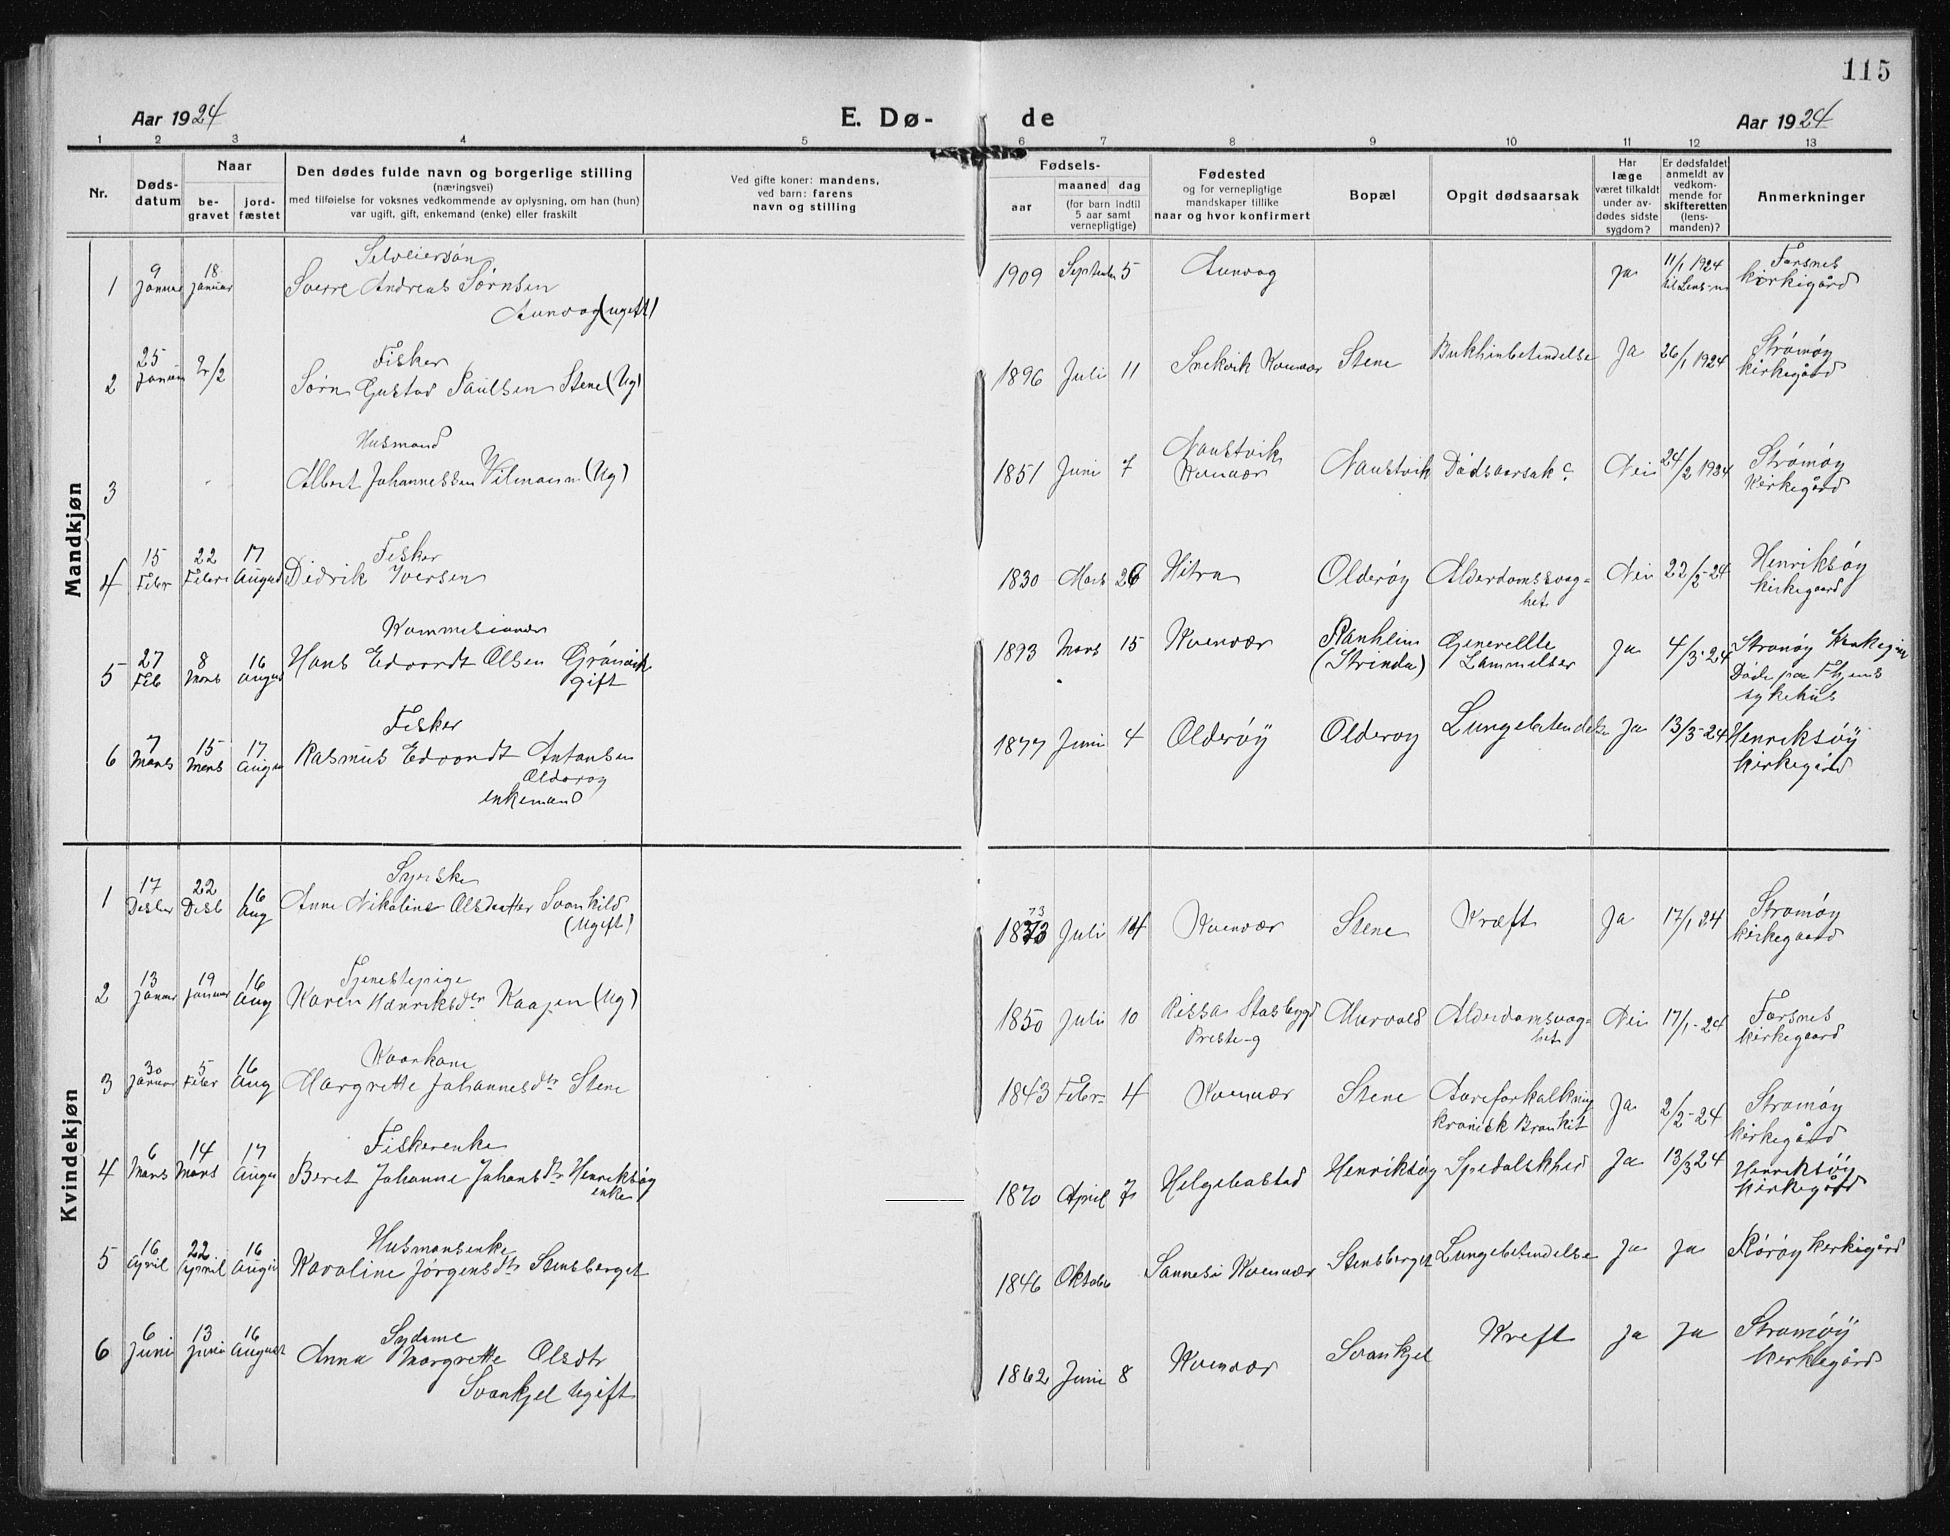 115
Aar 1924
E. Dø-
de
Aar 1924
1 2 3 4 5 6 7 8 9 10 11 12 13
Nr.
Døds-
datum
Naar
be-
gravet
jord-
fæstet
Den dødes fulde navn og borgerlige stilling
(næringsvei)
med tilføielse for voksnes vedkommende av oplysning, om han (hun)
var ugift, gift, enkemand (enke) eller fraskilt
Ved gifte koner: mandens,
ved barn: farens
navn og stilling
Fødsels-
aar
maaned
dag
(for barn indtil
5 aar samt
vernepligtige)
Fødested
og for vernepligtige
mandskaper tillike
naar og hvor konfirmert
Bopæl
Opgit dødsaarsak
Har
læge
været tilkaldt
under av-
dødes sidste
sygdom?
Er dødsfaldet
anmeldt av
vedkom-
mende for
skifteretten
(lens-
manden)?
Anmerkninger
Mandkjøn
1 9 Januar 18 Januar
Selveiersøn
Sverre Andreas Sørnsen
Aunvog (ugift)
1909 September 5 Aunvog Ja 11/1 1924
Forsnes
kirkigård
2 25 Januar 2/2
Fisker
Sørn Gustav Paulsen Stene (Ug)
1896 Juli 11 Snekvik Kvenvær Stene Bukhinbetendelse Ja 26/1 1924
Strømøy
kirkegård
3
Husmand
Albert Johannessen Vilmann (Ug)
1851 Juni 7 Naustvik
Kvenvær
Naustvik Dødsaarsak Nei 24/2 1924
Strømøy
kirkegård
4 15 Febr 22 Febr 17 August
Fisker
Didrik Iversen
1830 Mars 26 Hitra Olderøy Alderdomssvag-
het
Nei 22/2-24
Henriksøy
kirkegaard
5 27 Feb 8 Mars 16 August
Kommesioner
Hans Edvardt Olsen
gift
1893 Mars 15 Kvenvær Ranheim
(Strinda)
Generellte
Lammelser
Ja 4/3-24
Stromøy
Døde paa
sykehus
6 7 Mars 15 Mars 17 August
Fisker
Rasmus Edvardt Antonsen
Olderøy
enkemand
1877 Juni 4 Olderøy Olderøy Lungebetendelse Ja 13/3-24
Henriksøy
kirkegård
Kvindekjøn
1 17 Desber 22 Desb 16 Aug
Syerske
Anne Nikoline Olsdatter Svankild
(Ugift)
73
1873 Juli 14 Kvenvær Stene Kræft Ja 17/1 24
Stromøy
kirkegaard
2 13 Januar 19 Januar 16 Aug
Tjenestepige
Karen Henriksdtr Kaajen (Ug)
1850 Juli 10 Rissa Stadsbygd
Preste-g
Murvold Alderdomsvag-
het
Nei 17/1-24
Forsnes
kirkegaard
3 30 Januar 5 Febr 16 Aug
Kaarkone
Margrette Johannesdtr Stene
1843 Febr 4 Kvenvær Stene Aareforkalkning
kronisk Bronkit
Ja 2/2-24
Stromøy
kirkegård
4 6 Mars 14 Mars 17 August
Fiskerenke
Beret Johanne Johansdtr Henriksøy
enke
1870 April 7 Helgebostad Henriksøy Spedalskhed Ja 13/3 24
Henriksøy
kirkegård
5 16 April 22 April 16 August
Husmansenke
Karoline Jørgensdtr Stensberget
1846 Oktober Sannesi Kvenvær Stensberget Lungebetendelse Ja Ja Rørøy kerkigård
6 6 Juni 13 Juni 16 August
Sydame
Anna Margrette Olsdtr
Svankjel Ugift
1862 Juni 8 Kvenvær Svankjel Kreft Ja Ja
Stromøy
kerkegård